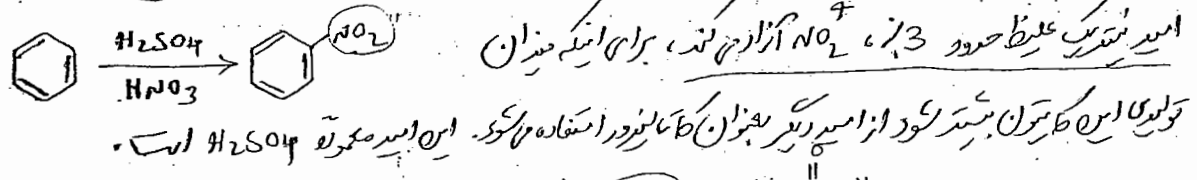 H2SO4
HNO3
NO2
اسید نیتریک غلیظ حدود 3٪، NO2+ آزاد می کند، برای اینکه میزان
تولید این کاتیون بیشتر شود از اسید دیگر بعنوان کاتالیزور استفاده می شود. این اسید معمولاً H2SO4 است.